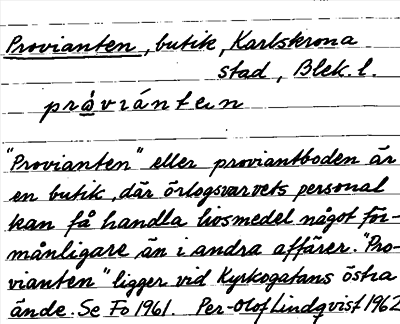 Provianten, butik, Karlskrona
stad, Blek. l.
pràviánten
"Provianten" eller proviantboden är
en butik, där örlogsvarvets personal
kan få handla livsmedel något för-
månligare än i andra affärer. "Pro-
vianten" ligger vid Kyrkogatans östra
ände. Se Fo 1961. Per-Olof Lindqvist 1962